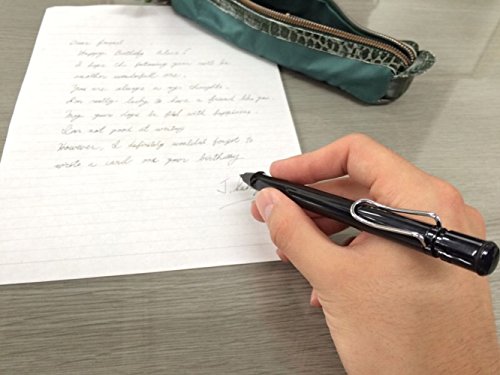 Dear friend
Happy Birthday Alice!
I hope the following year will be
another wonderful one.
You are always a
I'm really lucky to have a friend like you.
May your days be filled with happiness.
I'm not good at writing
However, I definitely wouldn't forget to
write a card on your birthday
J.